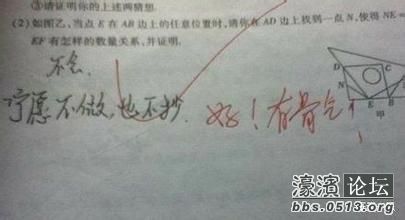 ③请证明你的上述两猜想.
(2)如图乙,当点E在AB边上的任意位置时,请你在AD边上找到一点N,使得NE=
EF有怎样的数量关系,并证明.
不会.
宁愿不做,也不抄. 好!有骨气!
D C
N
A E B
甲
濠滨论坛
bbs.0513.org